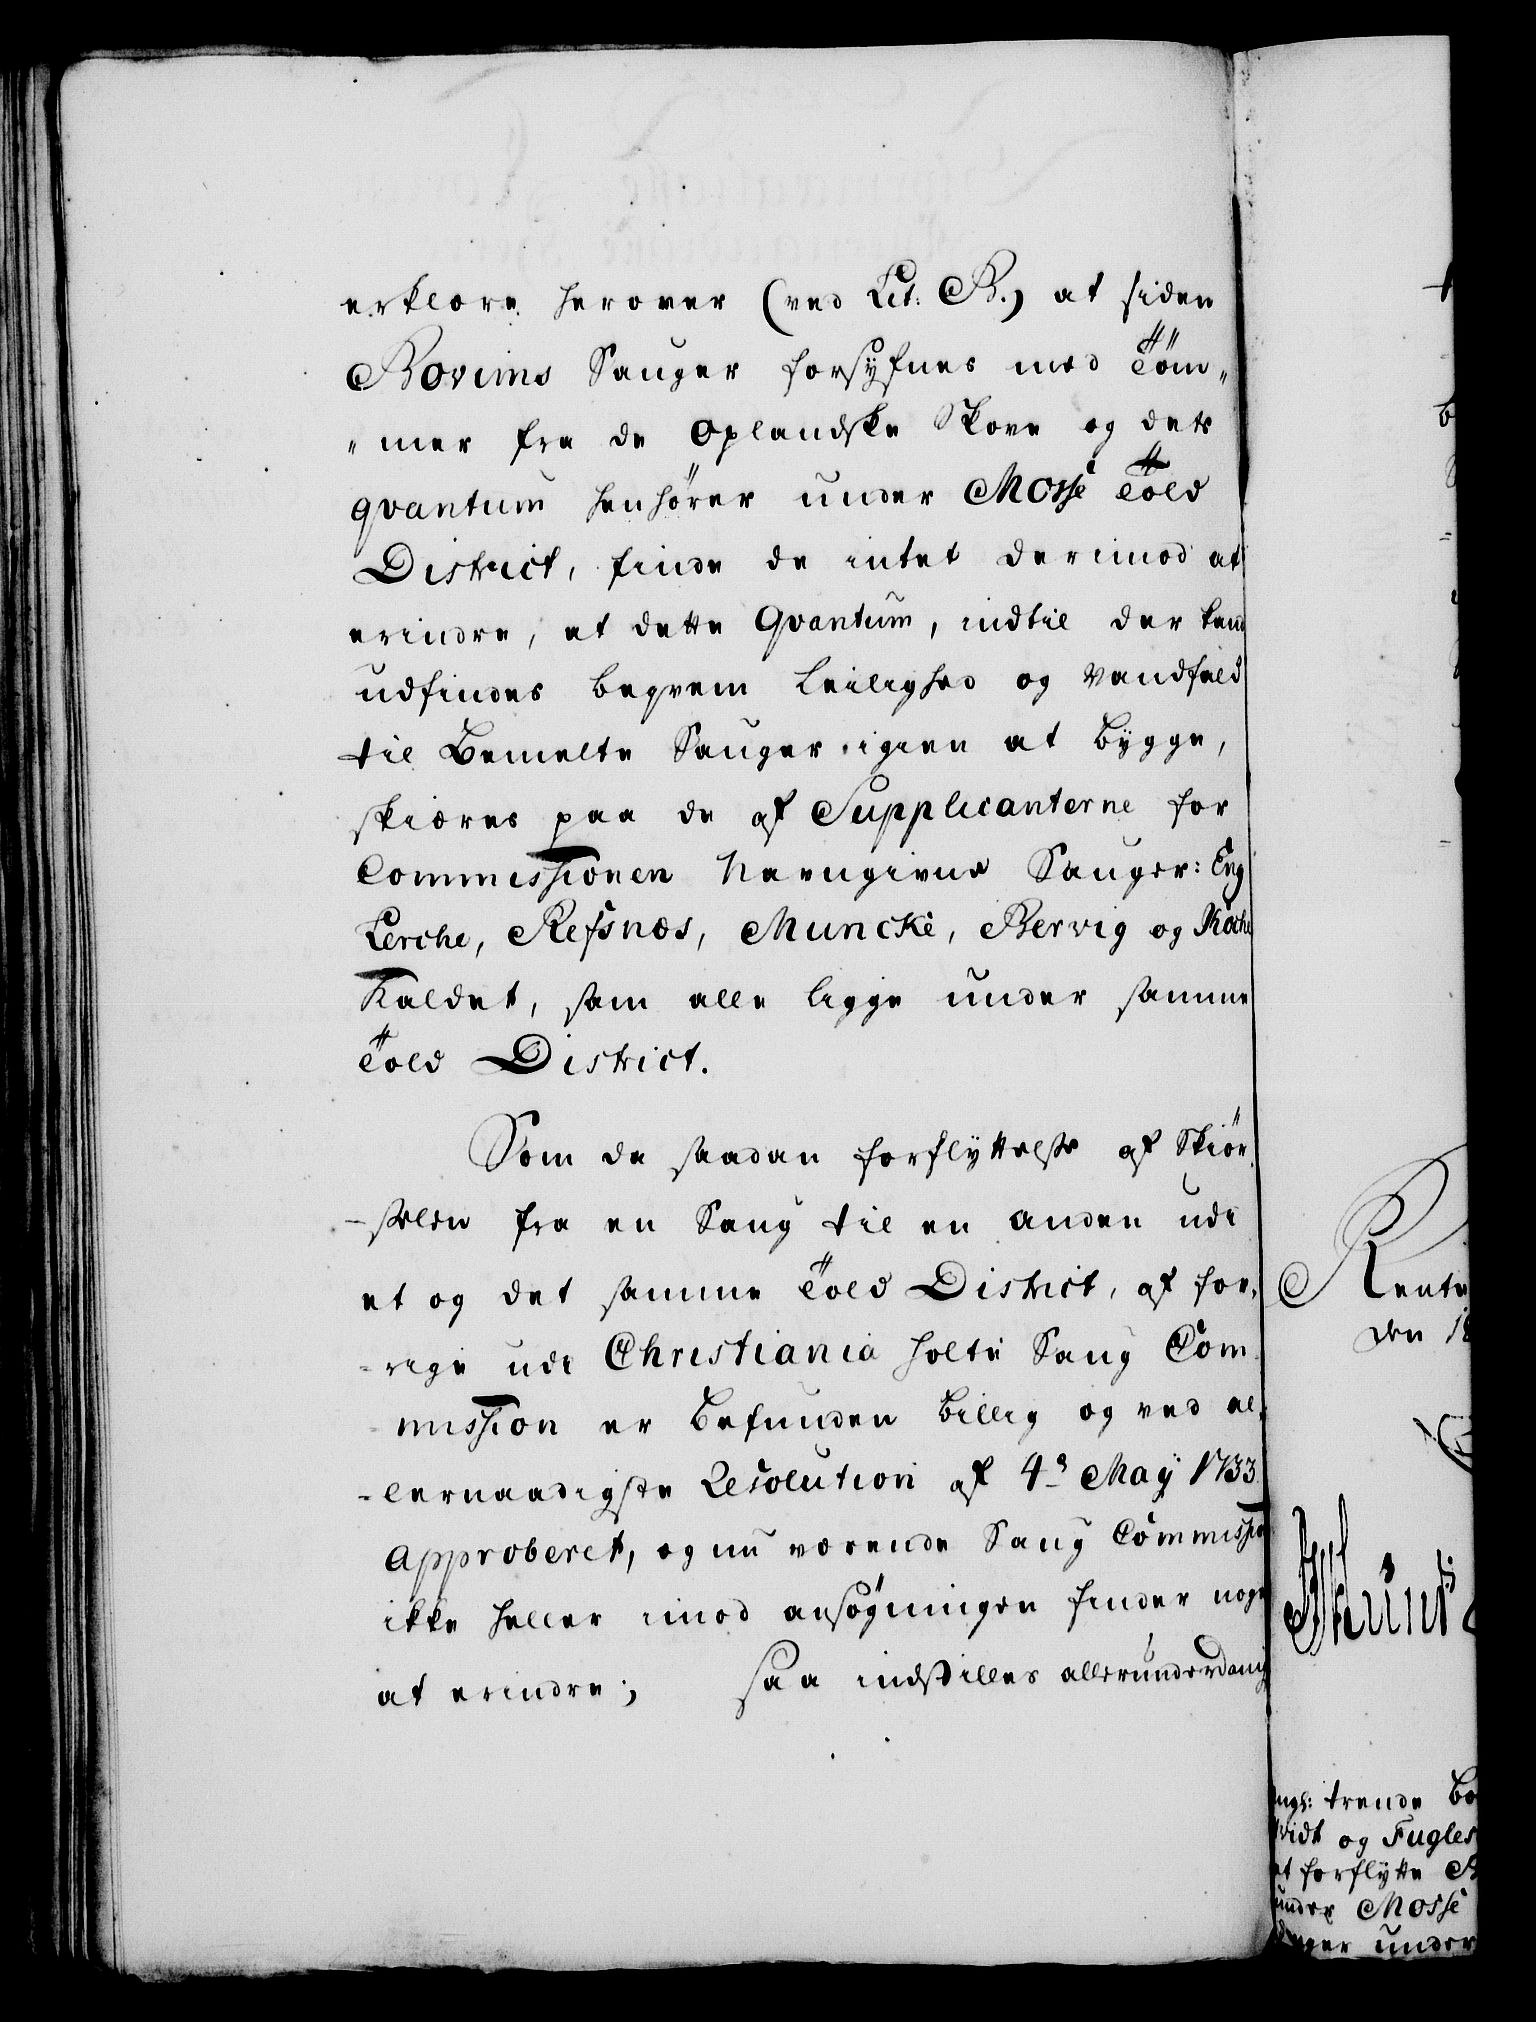 erklære herover (ved Lit: B.) at siden
Bovims Sauger forsÿfnes med Töm„
„mer fra de Oplandske Skove og dets
qvantum henhörer under Mosse Told
District, finde de intet derimod at
erindre, at dette Qvantum, indtil der kand
udfindes beqvem Leilighed og Vandfald
til Bemelte Sauger igien at bÿgge,
skiæres paa de af Supplicanterne for
Commissionen Navngivne Sauger: Eng
Lerche, Refsnæs, Muncke, Bervig og
Kaldet, som alle ligge under samme
Told District.
Som da saadan forflÿttelse af Skiör
-selen fra en Saug til en anden udi
et og det samme Told District, af for,
-rige udi Christiania holte Saug Com
-mission er befunden billig og ved al,
-lernaadigste Resolution af 4de Maÿ 1733
Approberet, og nu værende Saug Commission
ikke heller imod ansögningen finder noget
at erindre; saa indstilles allerunderdanig
Rente
den 18
ngl: trende Bo
vidt og Fugles
at forflÿtte
under Mosse
under